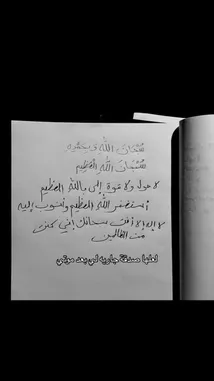 سُبْحَانَ اللّٰهِ وبحمده
سُبْحَانَ اللّٰهِ الْعَظِيم
لا حول ولا قوة إلى بالله العظيم
أستغفر الله العظيم وأتوب إليه
لا إله إلا أنت سبحانك إني كنت
من الظالمين
لعلها صدقة جاريه لي بعد موتي